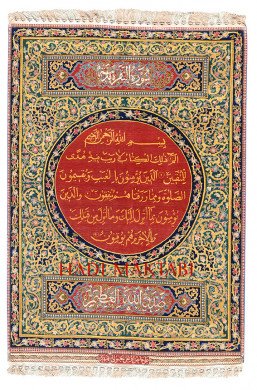 سورة البقرة
بسم الله الرحمن الرحيم
الم ذلك الكتاب لا ريب فيه هدى
للمتقين الذين يؤمنون بالغيب ويقيمون
الصلوة ومما رزقناهم ينفقون والذين
يؤمنون بما أنزل إليك وما أنزل من قبلك
وبالآخرة هم يوقنون
HADI MAKTABI
صدق الله العظيم